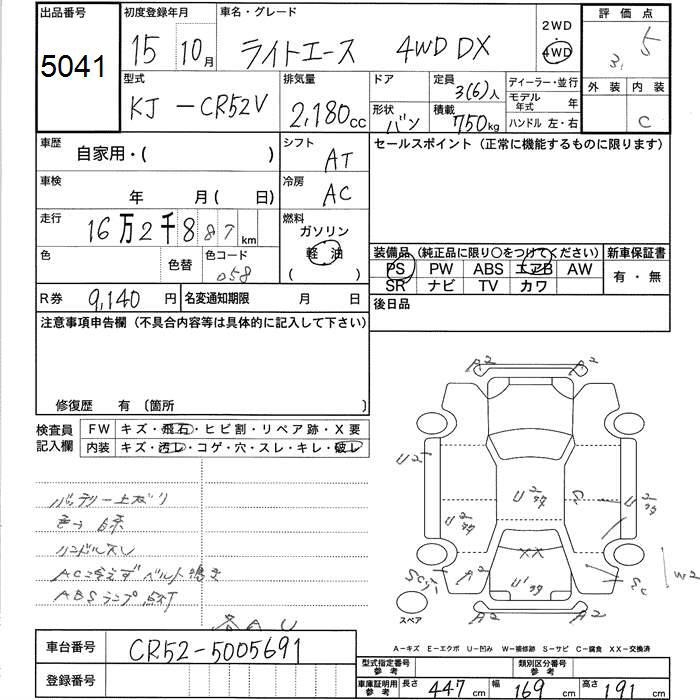 出品番号 初度登録年月 車名・グレード 2WD 4WD 評価点
5041 15 10月 ライトエース 4WD DX 3.5
型式 排気量 ドア 定員 ディーラー・並行 外装 内装
KJ-CR52V 2,180cc 3(6)人 モデル年式 年
形状 バン 積載 750kg ハンドル 左・右 C
車歴 自家用・( ) シフト AT セールスポイント(正常に機能するものに限ります)
車検 年 月( 日) 冷房 AC
走行 16万2千887km 燃料 ガソリン 軽油 ( )
色 色替 色コード 058
装備品(純正品に限り○をつけてください) 新車保証書
PS PW ABS エアB AW 有・無
SR ナビ TV カワ
R券 9,140円 名変通知期限 月 日 後日品
注意事項申告欄(不具合内容等は具体的に記入して下さい)
修復歴 有〔箇所 〕
検査員記入欄 FW キズ・飛石・ヒビ割・リペア跡・X要
内装 キズ・汚レ・コゲ・穴・スレ・キレ・破レ
バッテリー上がり
色っ 白系
ハンドルスレ
AC冷えず ベルト鳴き
ABSランプ点灯
各A U
A2 A2
U2
U2 U2
U2
A2 A2
XX
U1
Sc W2
A2 A2
スペア
A-キズ E-エクボ U-凹み W-補修跡 S-サビ C-腐食 XX-交換済
車台番号 CR52-5005691
登録番号
型式指定番号 参考 類別区分番号 参考
車庫証明用 参考 長さ 447cm 幅 169cm 高さ 191cm